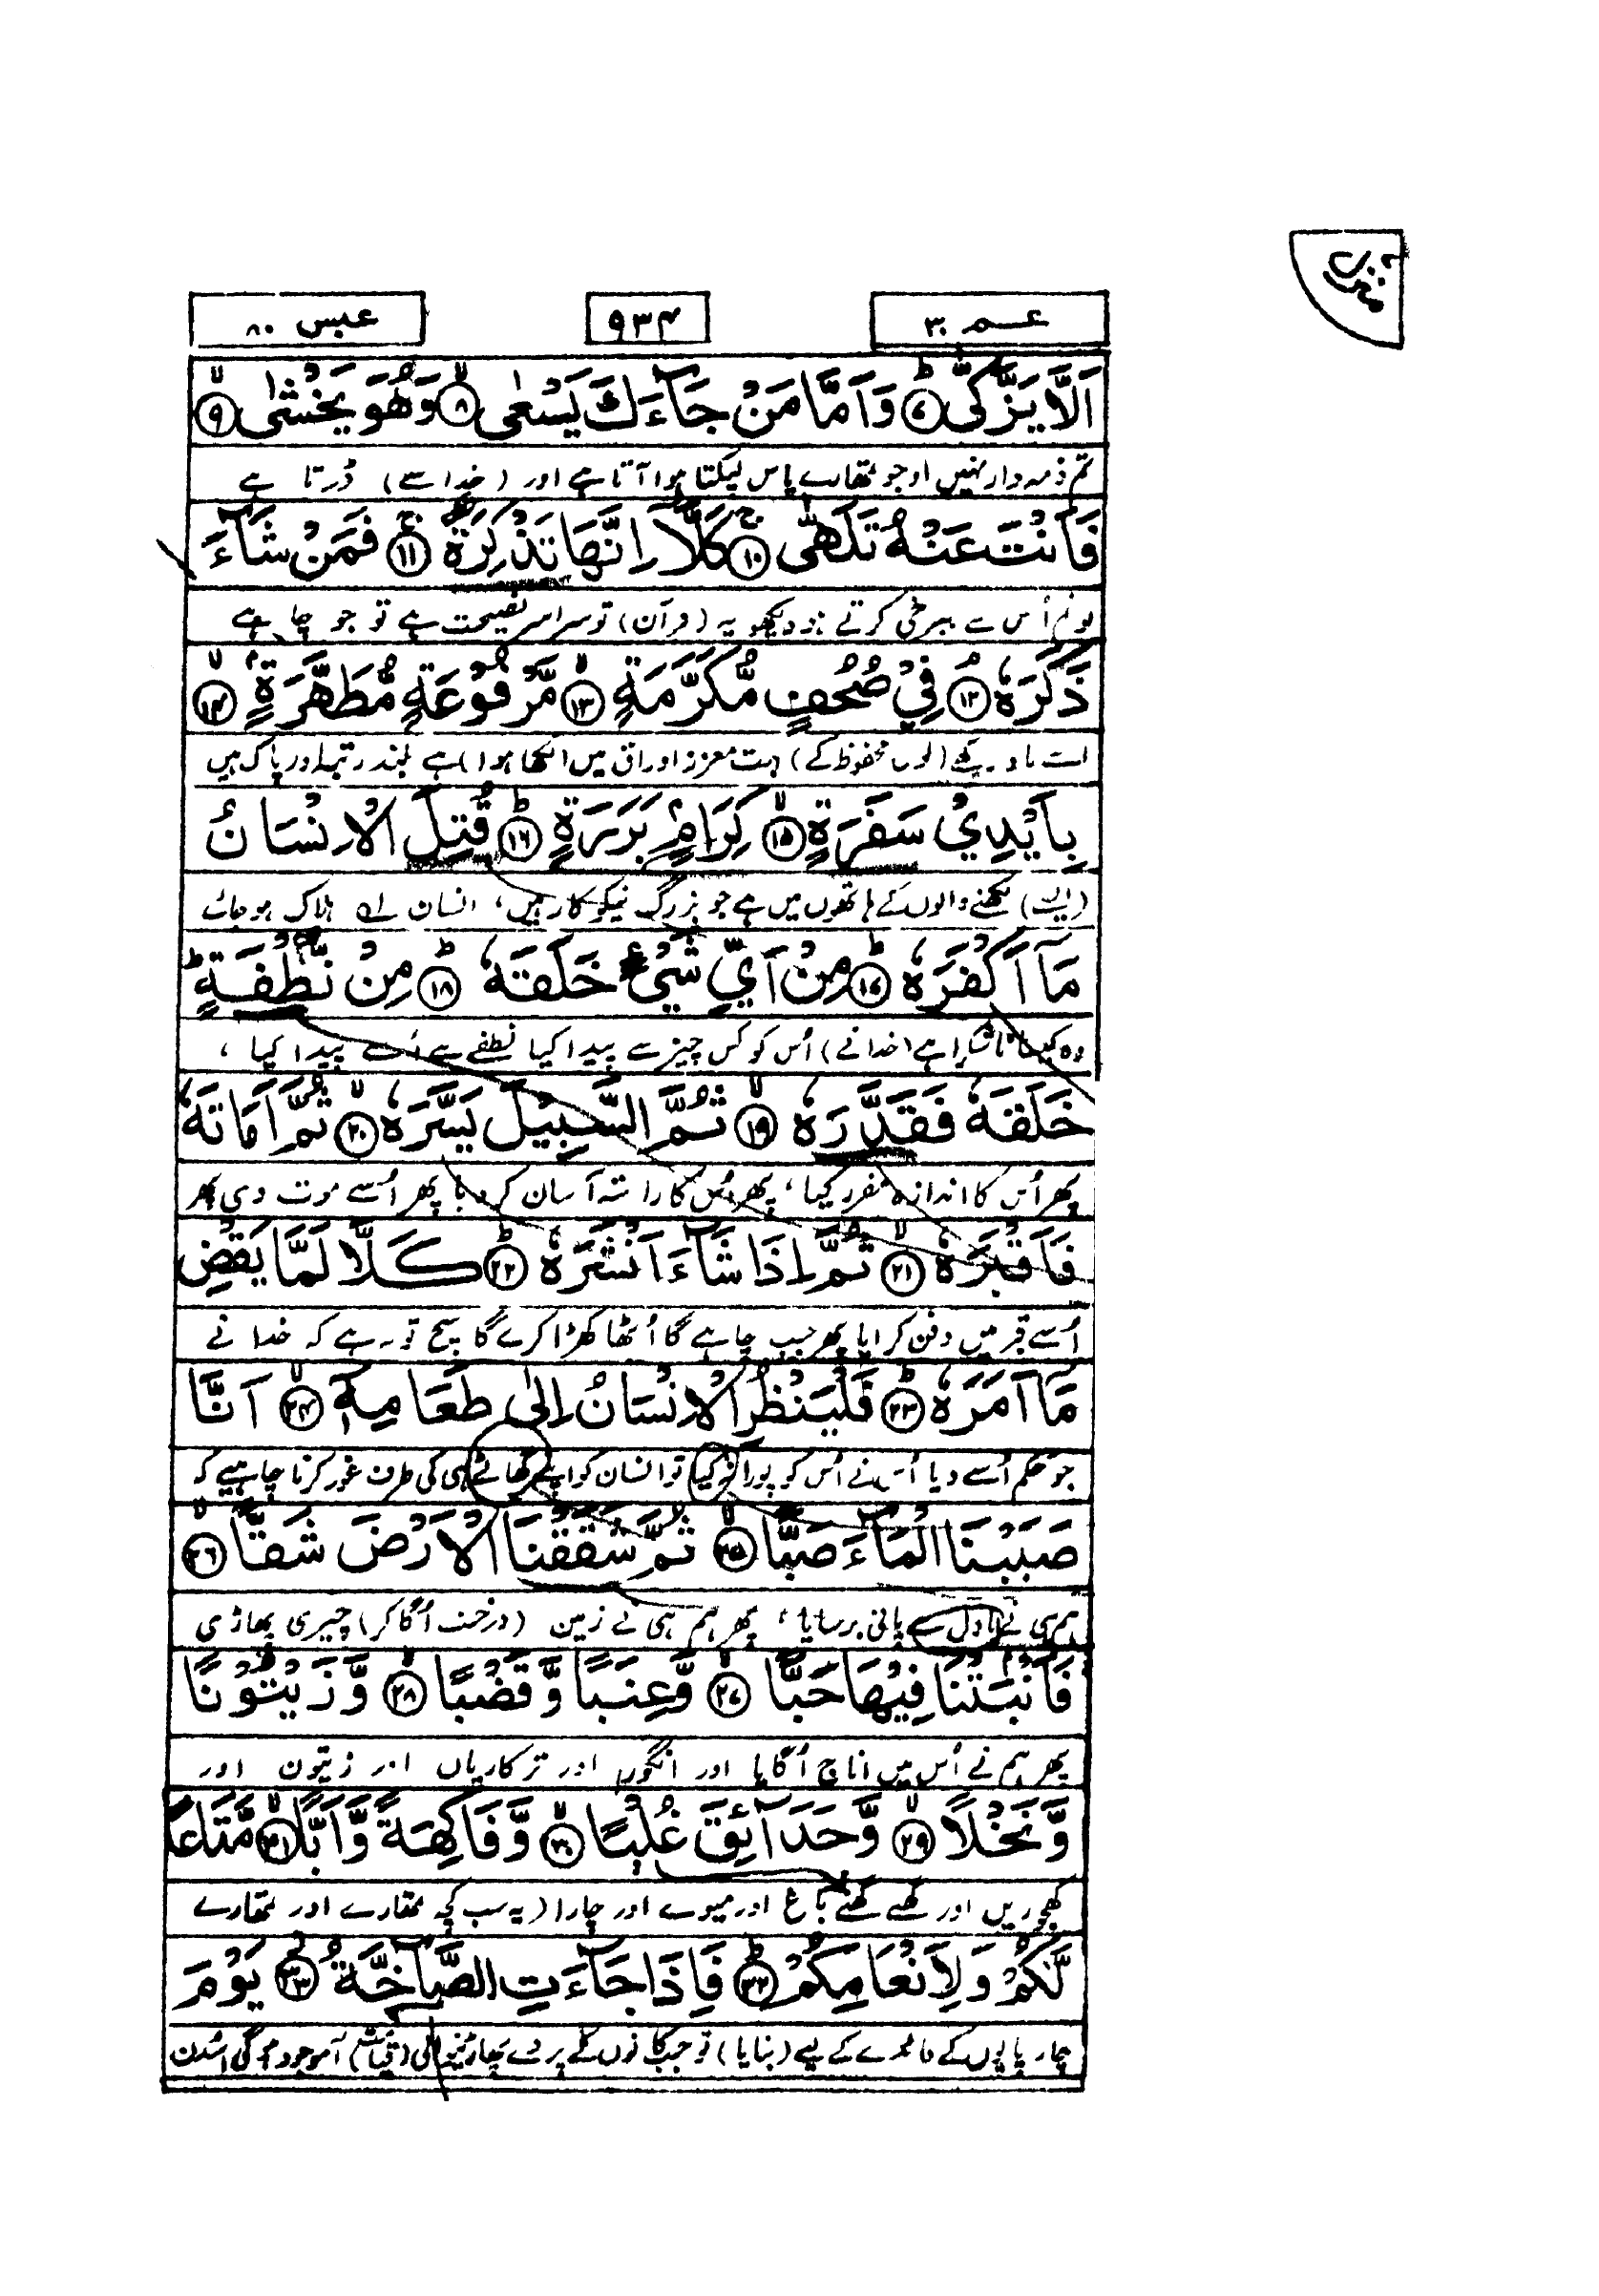 منزل
عـــم ۳۰
۹۳۴
عبس ۸۰
اَلَّا یَزَّکّٰی ۷ وَ اَمَّا مَنْ جَآءَكَ یَسْعٰی ۸ وَهُوَ یَخْشٰی ۹
تم ذمہ دار نہیں اور جو تمھارے پاس لپکتا ہوا آتا ہے اور (خدا سے) ڈرتا ہے
فَاَنْتَ عَنْهُ تَلَهّٰی ۱۰ کَلَّاۤ اِنَّهَا تَذْکِرَةٌ ۱۱ فَمَنْ شَآءَ
تو تم اُس سے بے رخی کرتے ہو دیکھو یہ (قرآن) تو سراسر نصیحت ہے تو جو چاہے
ذَکَرَهٗ ۱۲ فِیْ صُحُفٍ مُّکَرَّمَةٍ ۱۳ مَّرْفُوْعَةٍ مُّطَهَّرَةٍ ۱۴
اسے یاد رکھے (لوح محفوظ کے) بہت معزز اوراق میں (لکھا ہوا) ہے بلند رتبہ اور پاک ہیں
بِاَیْدِیْ سَفَرَةٍ ۱۵ کِرَامٍۭ بَرَرَةٍ ۱۶ قُتِلَ الْاِنْسَانُ
(ایسے) لکھنے والوں کے ہاتھوں میں ہے جو بزرگ نیکوکار ہیں، انسان ہلاک ہو جائے
مَاۤ اَکْفَرَهٗ ۱۷ مِنْ اَیِّ شَیْءٍ خَلَقَهٗ ۱۸ مِنْ نُّطْفَةٍ
وہ کیسا ناشکرا ہے (خدا نے) اُس کو کس چیز سے پیدا کیا نطفے سے اُسے پیدا کیا ،
خَلَقَهٗ فَقَدَّرَهٗ ۱۹ ثُمَّ السَّبِیْلَ یَسَّرَهٗ ۲۰ ثُمَّ اَمَاتَهٗ
پھر اُس کا اندازہ مقرر کیا ، پھر اُس کا راستہ آسان کر دیا پھر اُسے موت دی پھر
فَاَقْبَرَهٗ ۲۱ ثُمَّ اِذَا شَآءَ اَنْشَرَهٗ ۲۲ کَلَّا لَمَّا یَقْضِ
اُسے قبر میں دفن کرایا پھر جب چاہے گا اُٹھا کھڑا کرے گا سچ تو یہ ہے کہ خدا نے
مَاۤ اَمَرَهٗ ۲۳ فَلْیَنْظُرِ الْاِنْسَانُ اِلٰی طَعَامِهٖۤ ۲۴ اَنَّا
جو حکم اُسے دیا اُس نے اُس کو پورا نہ کیا تو انسان کو اپنے کھانے ہی کی طرف غور کرنا چاہیے کہ
صَبَبْنَا الْمَآءَ صَبًّا ۲۵ ثُمَّ شَقَقْنَا الْاَرْضَ شَقًّا ۲۶
ہم ہی نے بادل سے پانی برسایا ، پھر ہم ہی نے زمین (درخت اُگا کر) چیری پھاڑی
فَاَنْبَتْنَا فِیْهَا حَبًّا ۲۷ وَّعِنَبًا وَّقَضْبًا ۲۸ وَّزَیْتُوْنًا
پھر ہم نے اُس میں اناج اُگایا اور انگور اور ترکاریاں اور زیتون اور
وَّنَخْلًا ۲۹ وَّحَدَآئِقَ غُلْبًا ۳۰ وَّفَاکِهَةً وَّاَبًّا ۳۱ مَّتَاعًا
کھجوریں اور گھنے گھنے باغ اور میوے اور چارا (یہ سب کچھ تمھارے اور تمھارے
لَّکُمْ وَلِاَنْعَامِکُمْ ۳۲ فَاِذَا جَآءَتِ الصَّآخَّةُ ۳۳ یَوْمَ
چار پایوں کے فائدے کے لیے (بنایا) تو جب کانوں کے پردے پھاڑنیوالی (قیامت) آموجود ہو گی اُسدن